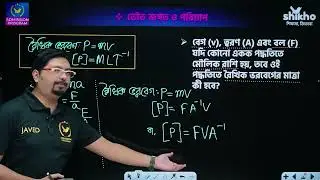 ADMISSION PROGRAM
❖ ভৌত জগত ও পরিমাপ
shikho
রৈখিক ভরবেগ P = mv
[P] = MLT⁻¹
ma
F/a
রৈখিক ভরবেগ: P = mv
[P] = FA⁻¹V
বা, [P] = FVA⁻¹
➢ বেগ (V), ত্বরণ (A) এবং বল (F)
যদি কোনো একক পদ্ধতিতে
মৌলিক রাশি হয়, তবে ওই
পদ্ধতিতে রৈখিক ভরবেগের মাত্রা
কী হবে?
JAVED